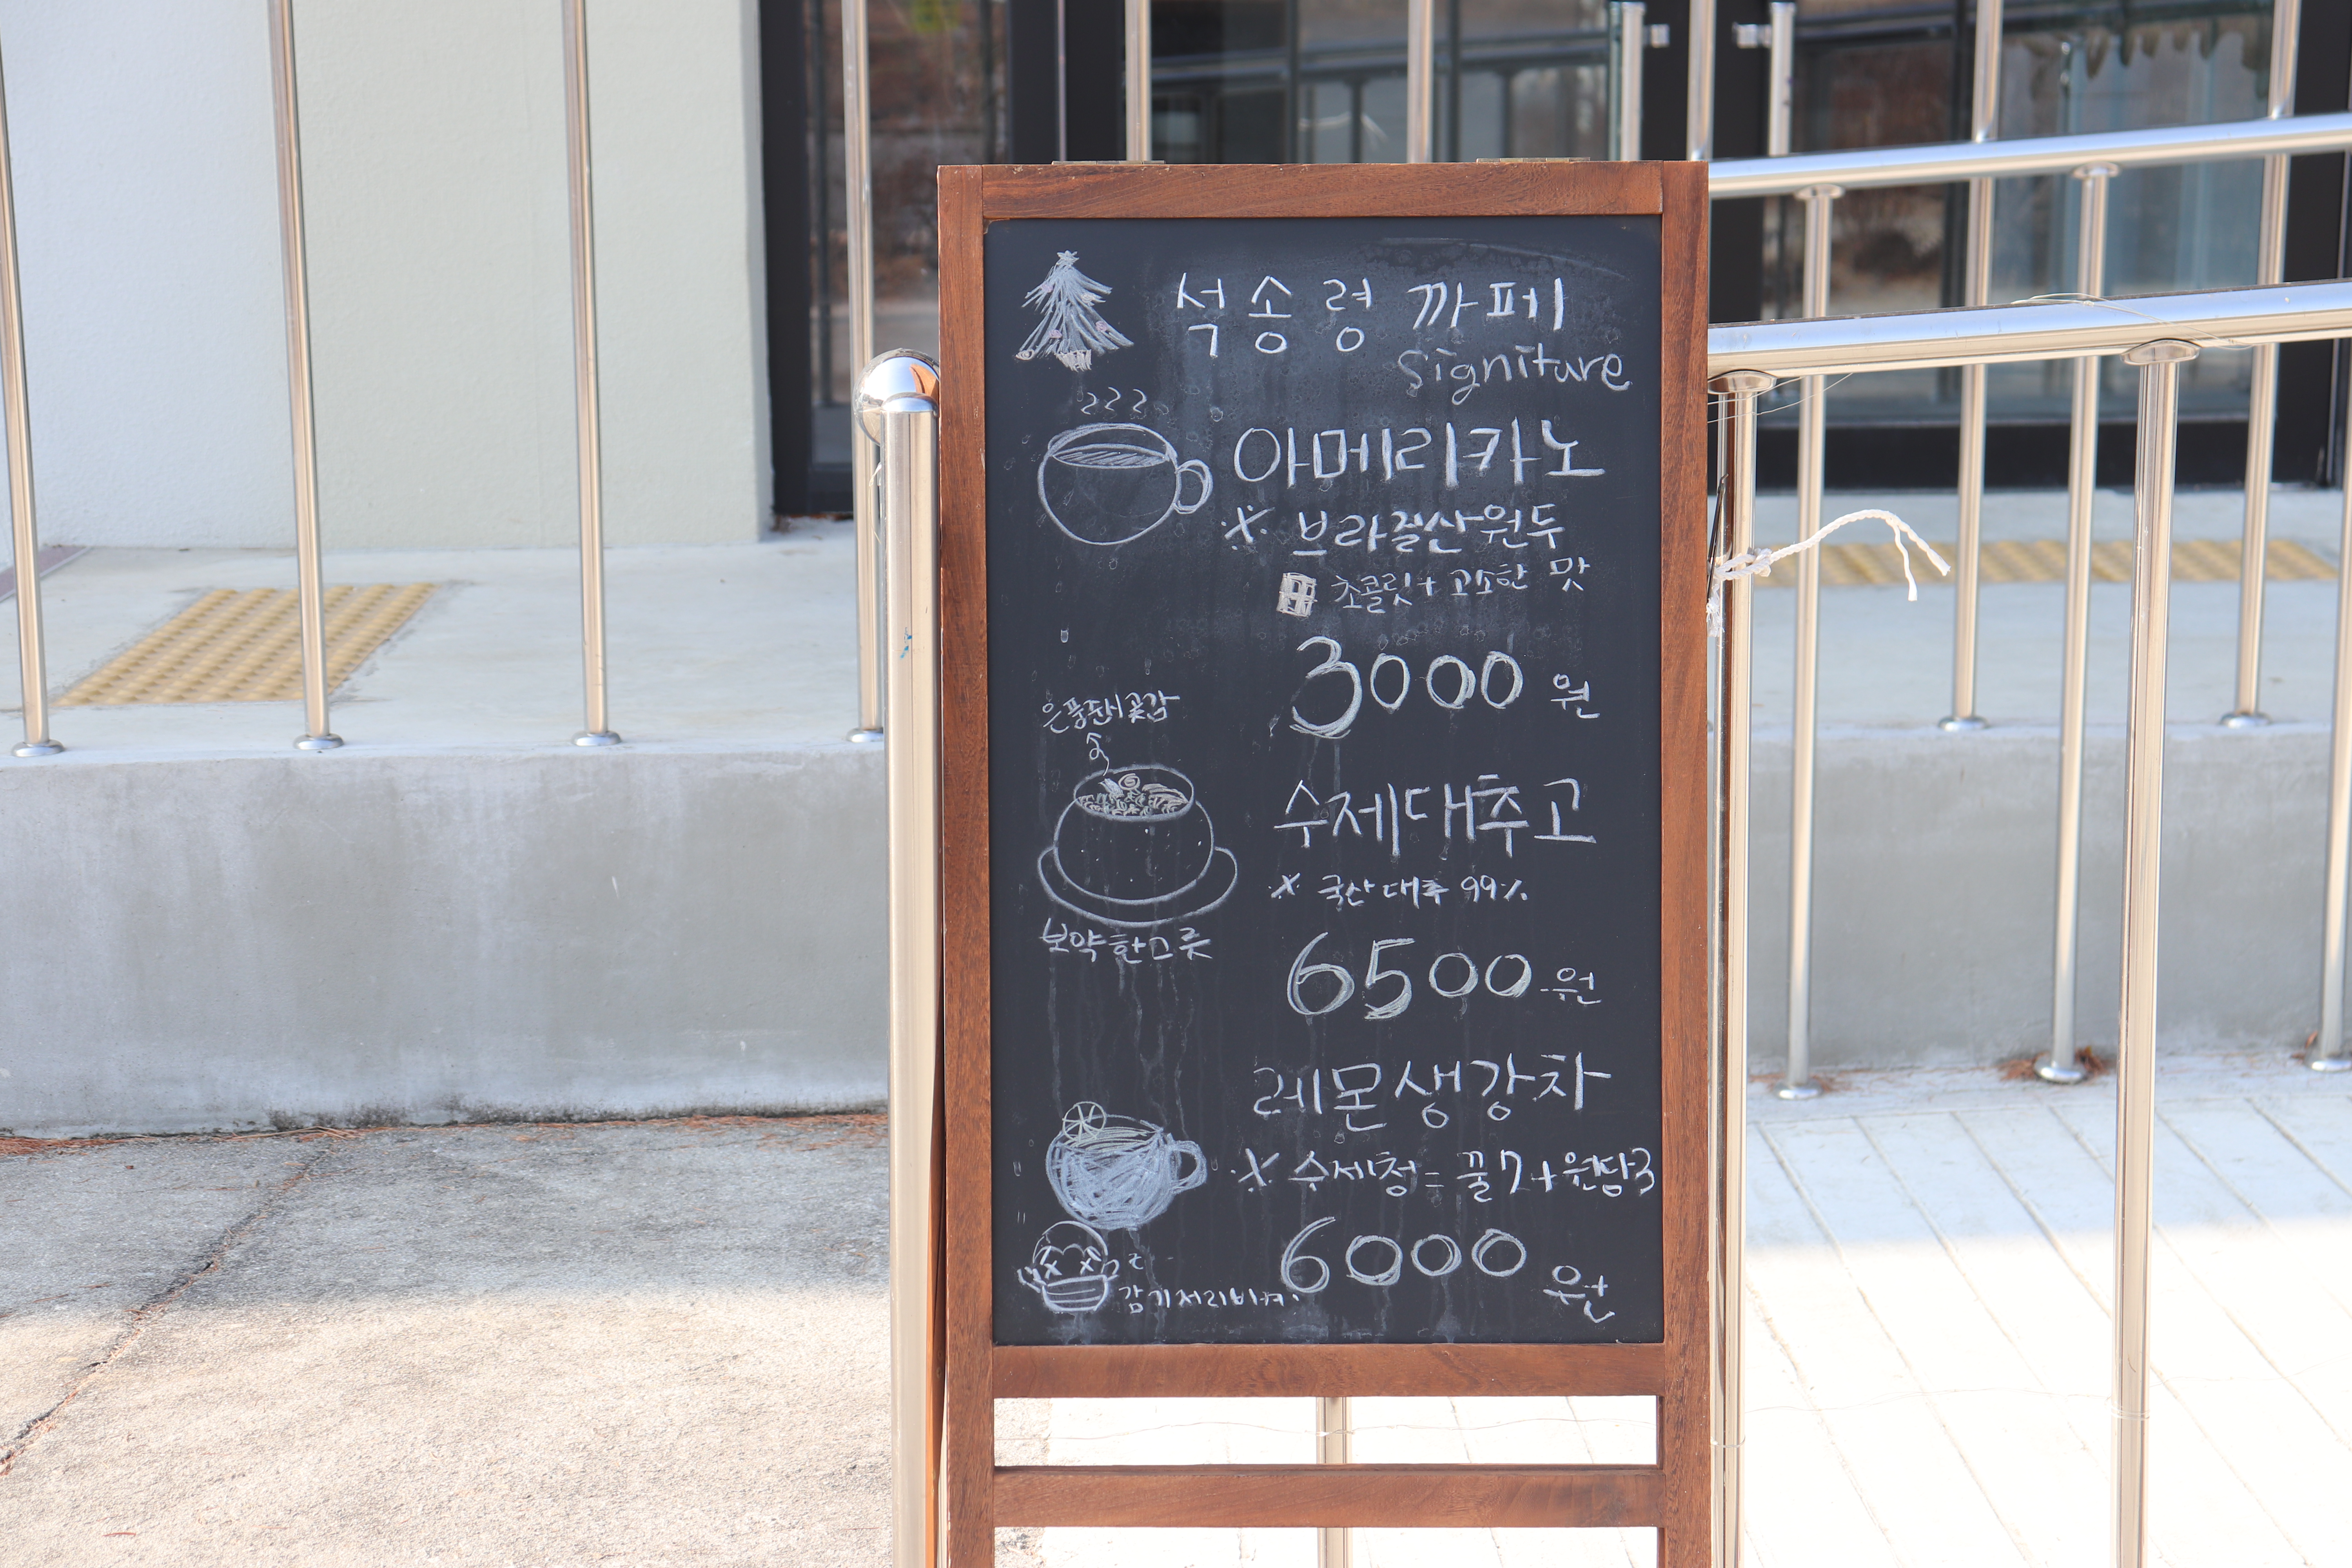 석송령 까페
signiture
아메리카노
※ 브라질산원두
초콜릿+ 고소한 맛
3000 원
은풍준시곶감
수제대추고
※ 국산대추 99%
보약한그릇
6500 원
레몬생강차
※ 수제청= 꿀7+원당3
6000 원
감기저리비켜